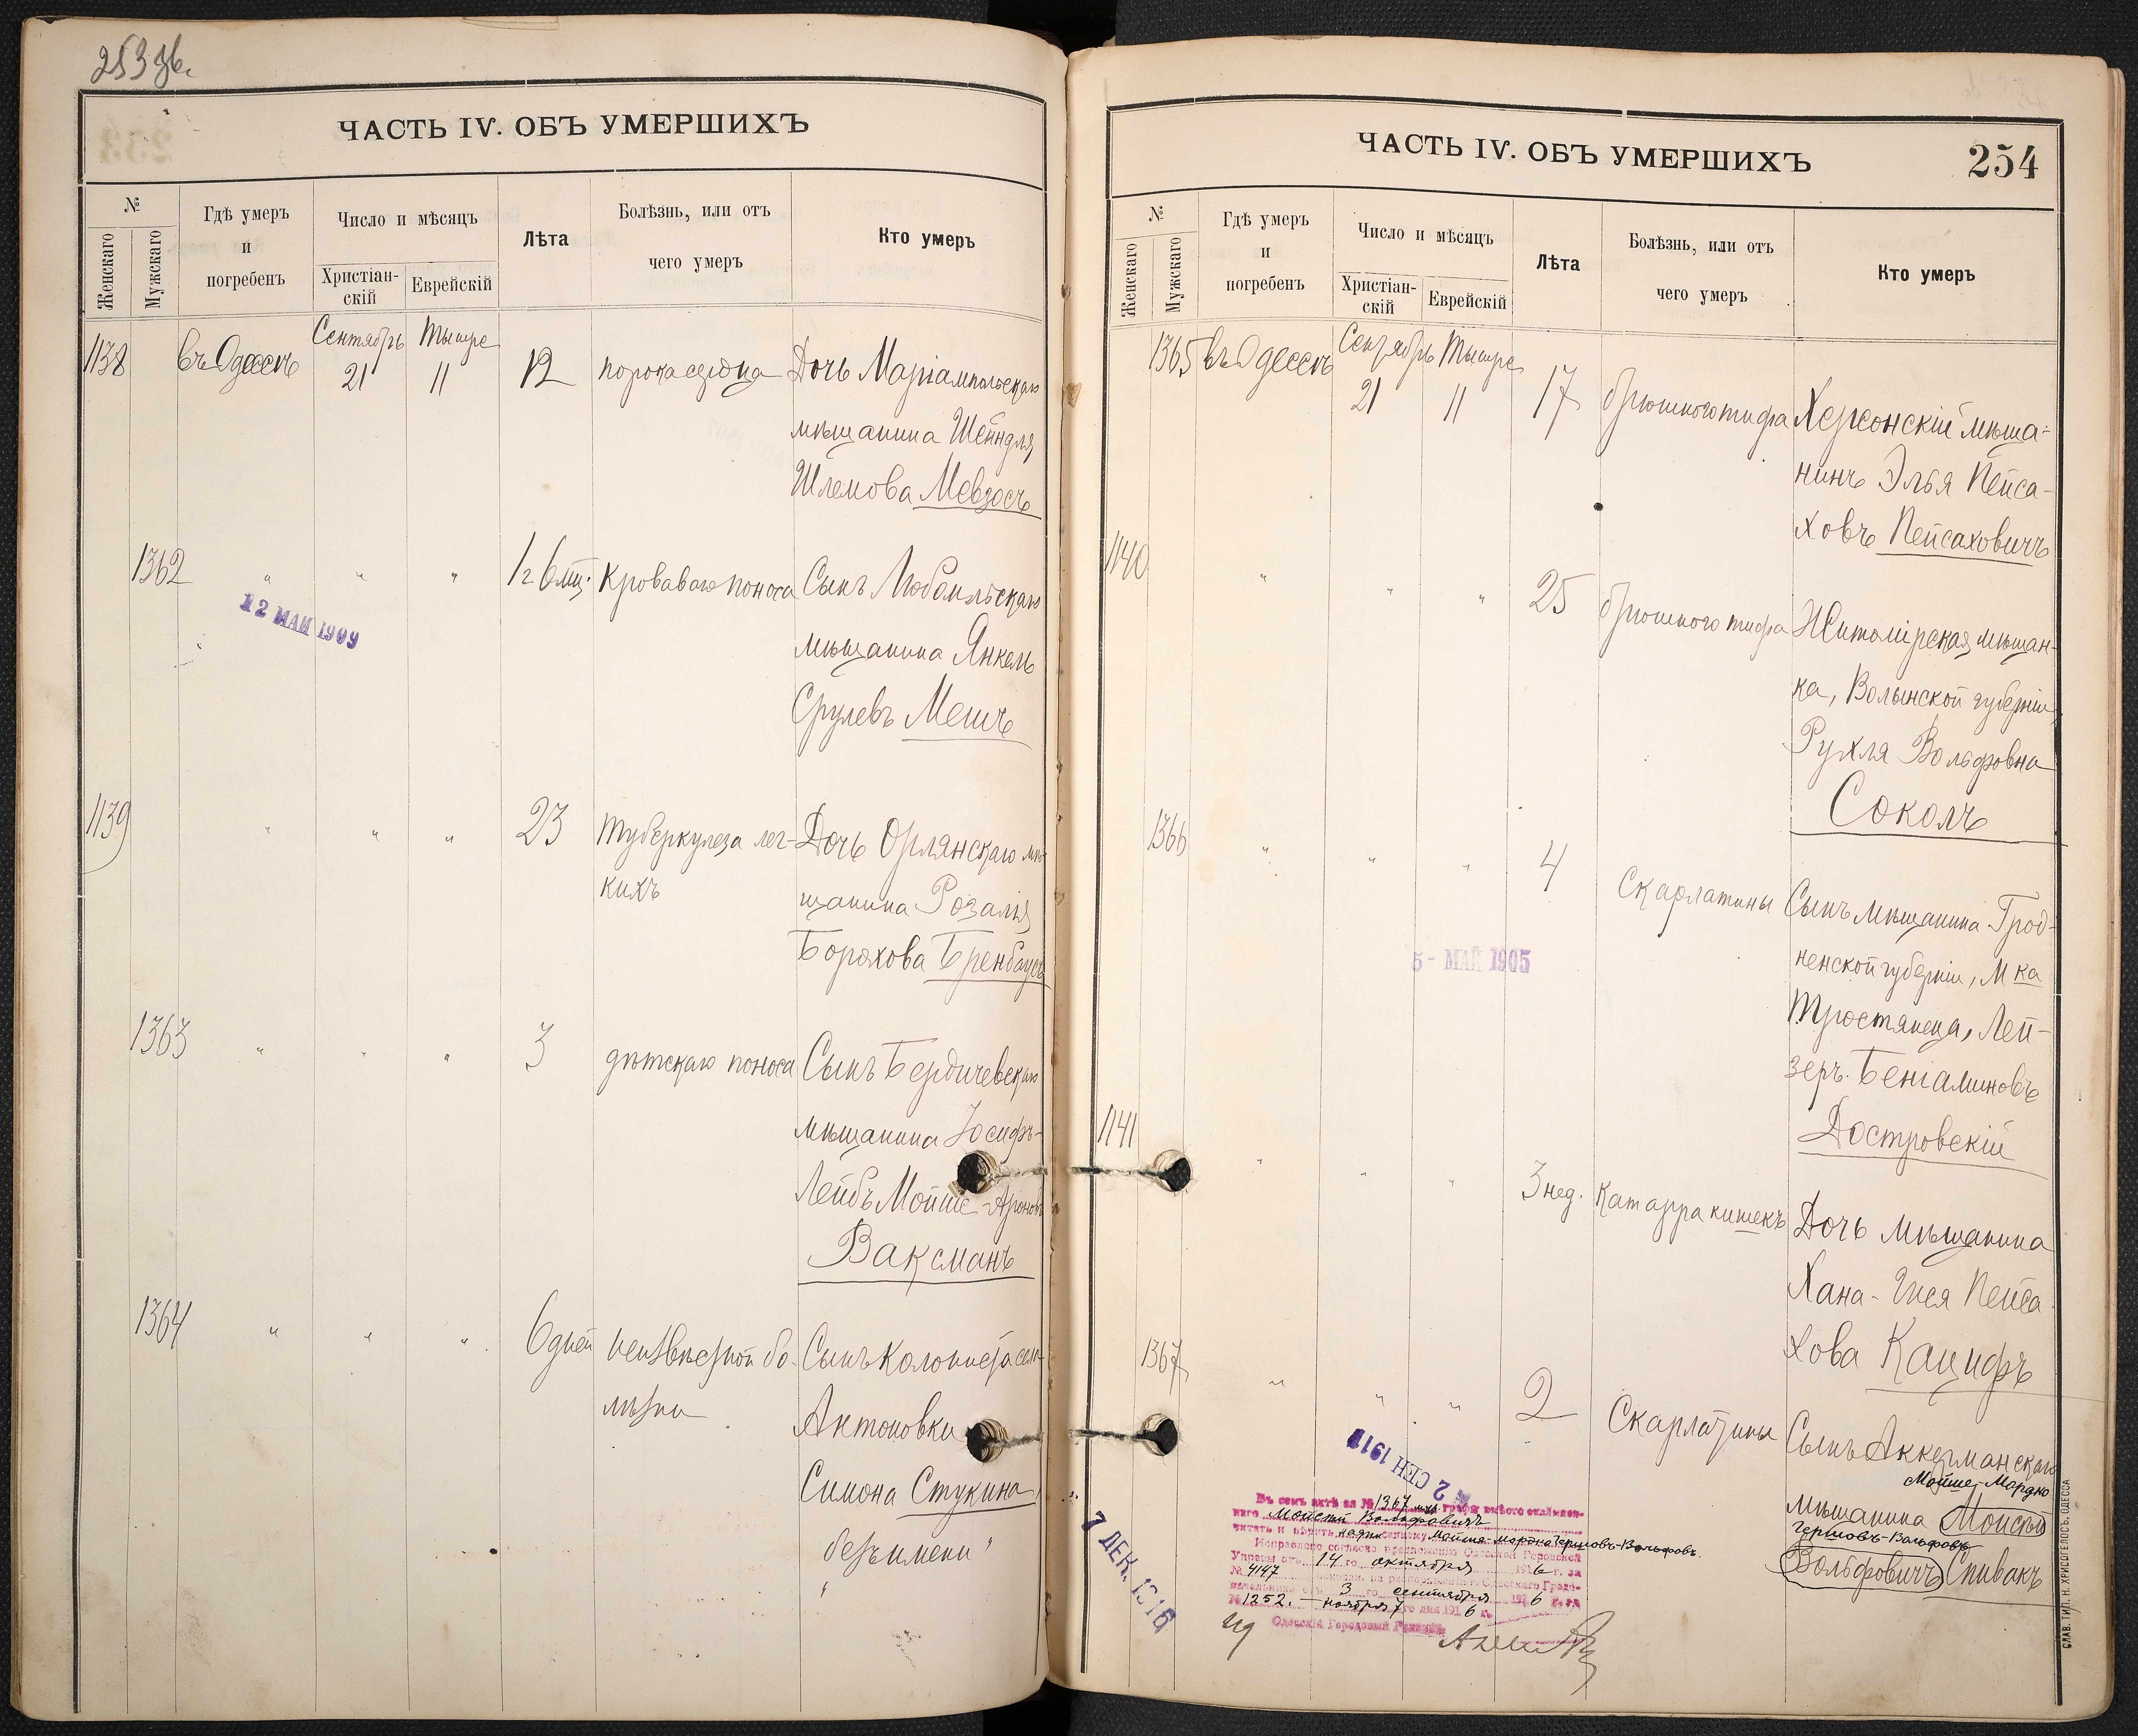 253 об.
ЧАСТЬ IV. ОБЪ УМЕРШИХЪ
№
Женскаго
Мужскаго
Гдѣ умеръ
и
погребенъ
Число и мѣсяцъ
Христіан-
скій
Еврейскій
Лѣта
Болѣзнь, или отъ
чего умеръ
Кто умеръ
Сентябрь Тишре
1138 въ Одессѣ 21 11 12 порока сердца Дочь Маріампольскаго
мѣщанина Шейндля
Шлемова Мевзосъ
1362 " " " 1 г 6 мц. Кроваваго поноса Сынъ Любомльскаго
12 МАЙ 1909
мѣщанина Янкель
Срулевъ Мешъ
1139 " " " 23 Туберкулеза лег- Дочь Орлянскаго мѣ-
кихъ
щанина Розалія
Борохова Бренбаумъ
1363 " " " 3 дѣтскаго поноса Сынъ Бердичевскаго
мѣщанина Іосифъ-
Лейбъ Мойше-Ароновъ
Ваксманъ
1364 " " " 6 дней неизвѣстной бо- Сынъ колониста сел.
лѣзни
Антоновки
Симона Стукина
"безъ имени"
ЧАСТЬ IV. ОБЪ УМЕРШИХЪ
254
№
Женскаго
Мужскаго
Гдѣ умеръ
и
погребенъ
Число и мѣсяцъ
Христіан-
скій
Еврейскій
Лѣта
Болѣзнь, или отъ
чего умеръ
Кто умеръ
Сентябрь Тишре
1365 въ Одессѣ 21 11 17 брюшного тифа Херсонскій мѣща-
нинъ Элья Пейса-
ховъ Пейсаховичъ
1140 " " " 25 брюшного тифа Житомірская мѣщан-
ка, Волынской губерніи
Рухля Вольфовна
Соколъ
1366 " " " 4 Скарлатины Сынъ мѣщанина Грод-
ненской губерніи, М ка
5 - МАЙ 1905
Тростянеца, Лей-
зеръ Беніаминовъ
Достровскій
1141 " " " 3 нед. Катарра кишекъ Дочь мѣщанина
Хана-Гися Пейса-
хова Кацифъ
1367 " " " 2 Скарлатины Сынъ Аккерманскаго
Мойше-Мордко
мѣщанина Моисей
Гершовъ-Вольфовъ
Вольфовичъ Спивакъ
2 СЕН 191
Въ семъ актѣ за № 1367 муж. графы вмѣсто ошибочн-
наго Моисей Вольфовичъ
читать и вѣрить надписанному Мойше-Мордко Гершовъ-Вольфовъ.
Исправлено согласно предложенію Одесской Городской
Управы отъ 14 го октября 1916 г. за
№ 4147
начальника отъ 3 го сентября 1916 г. за
№ 1252. — ноября 7 го дня 1916 г.
Одесскій Городовый Раввинъ
7 ДЕК. 1916
СЛАВ. ТИП. Н. ХРИСОГЕЛОСЪ, ОДЕССА